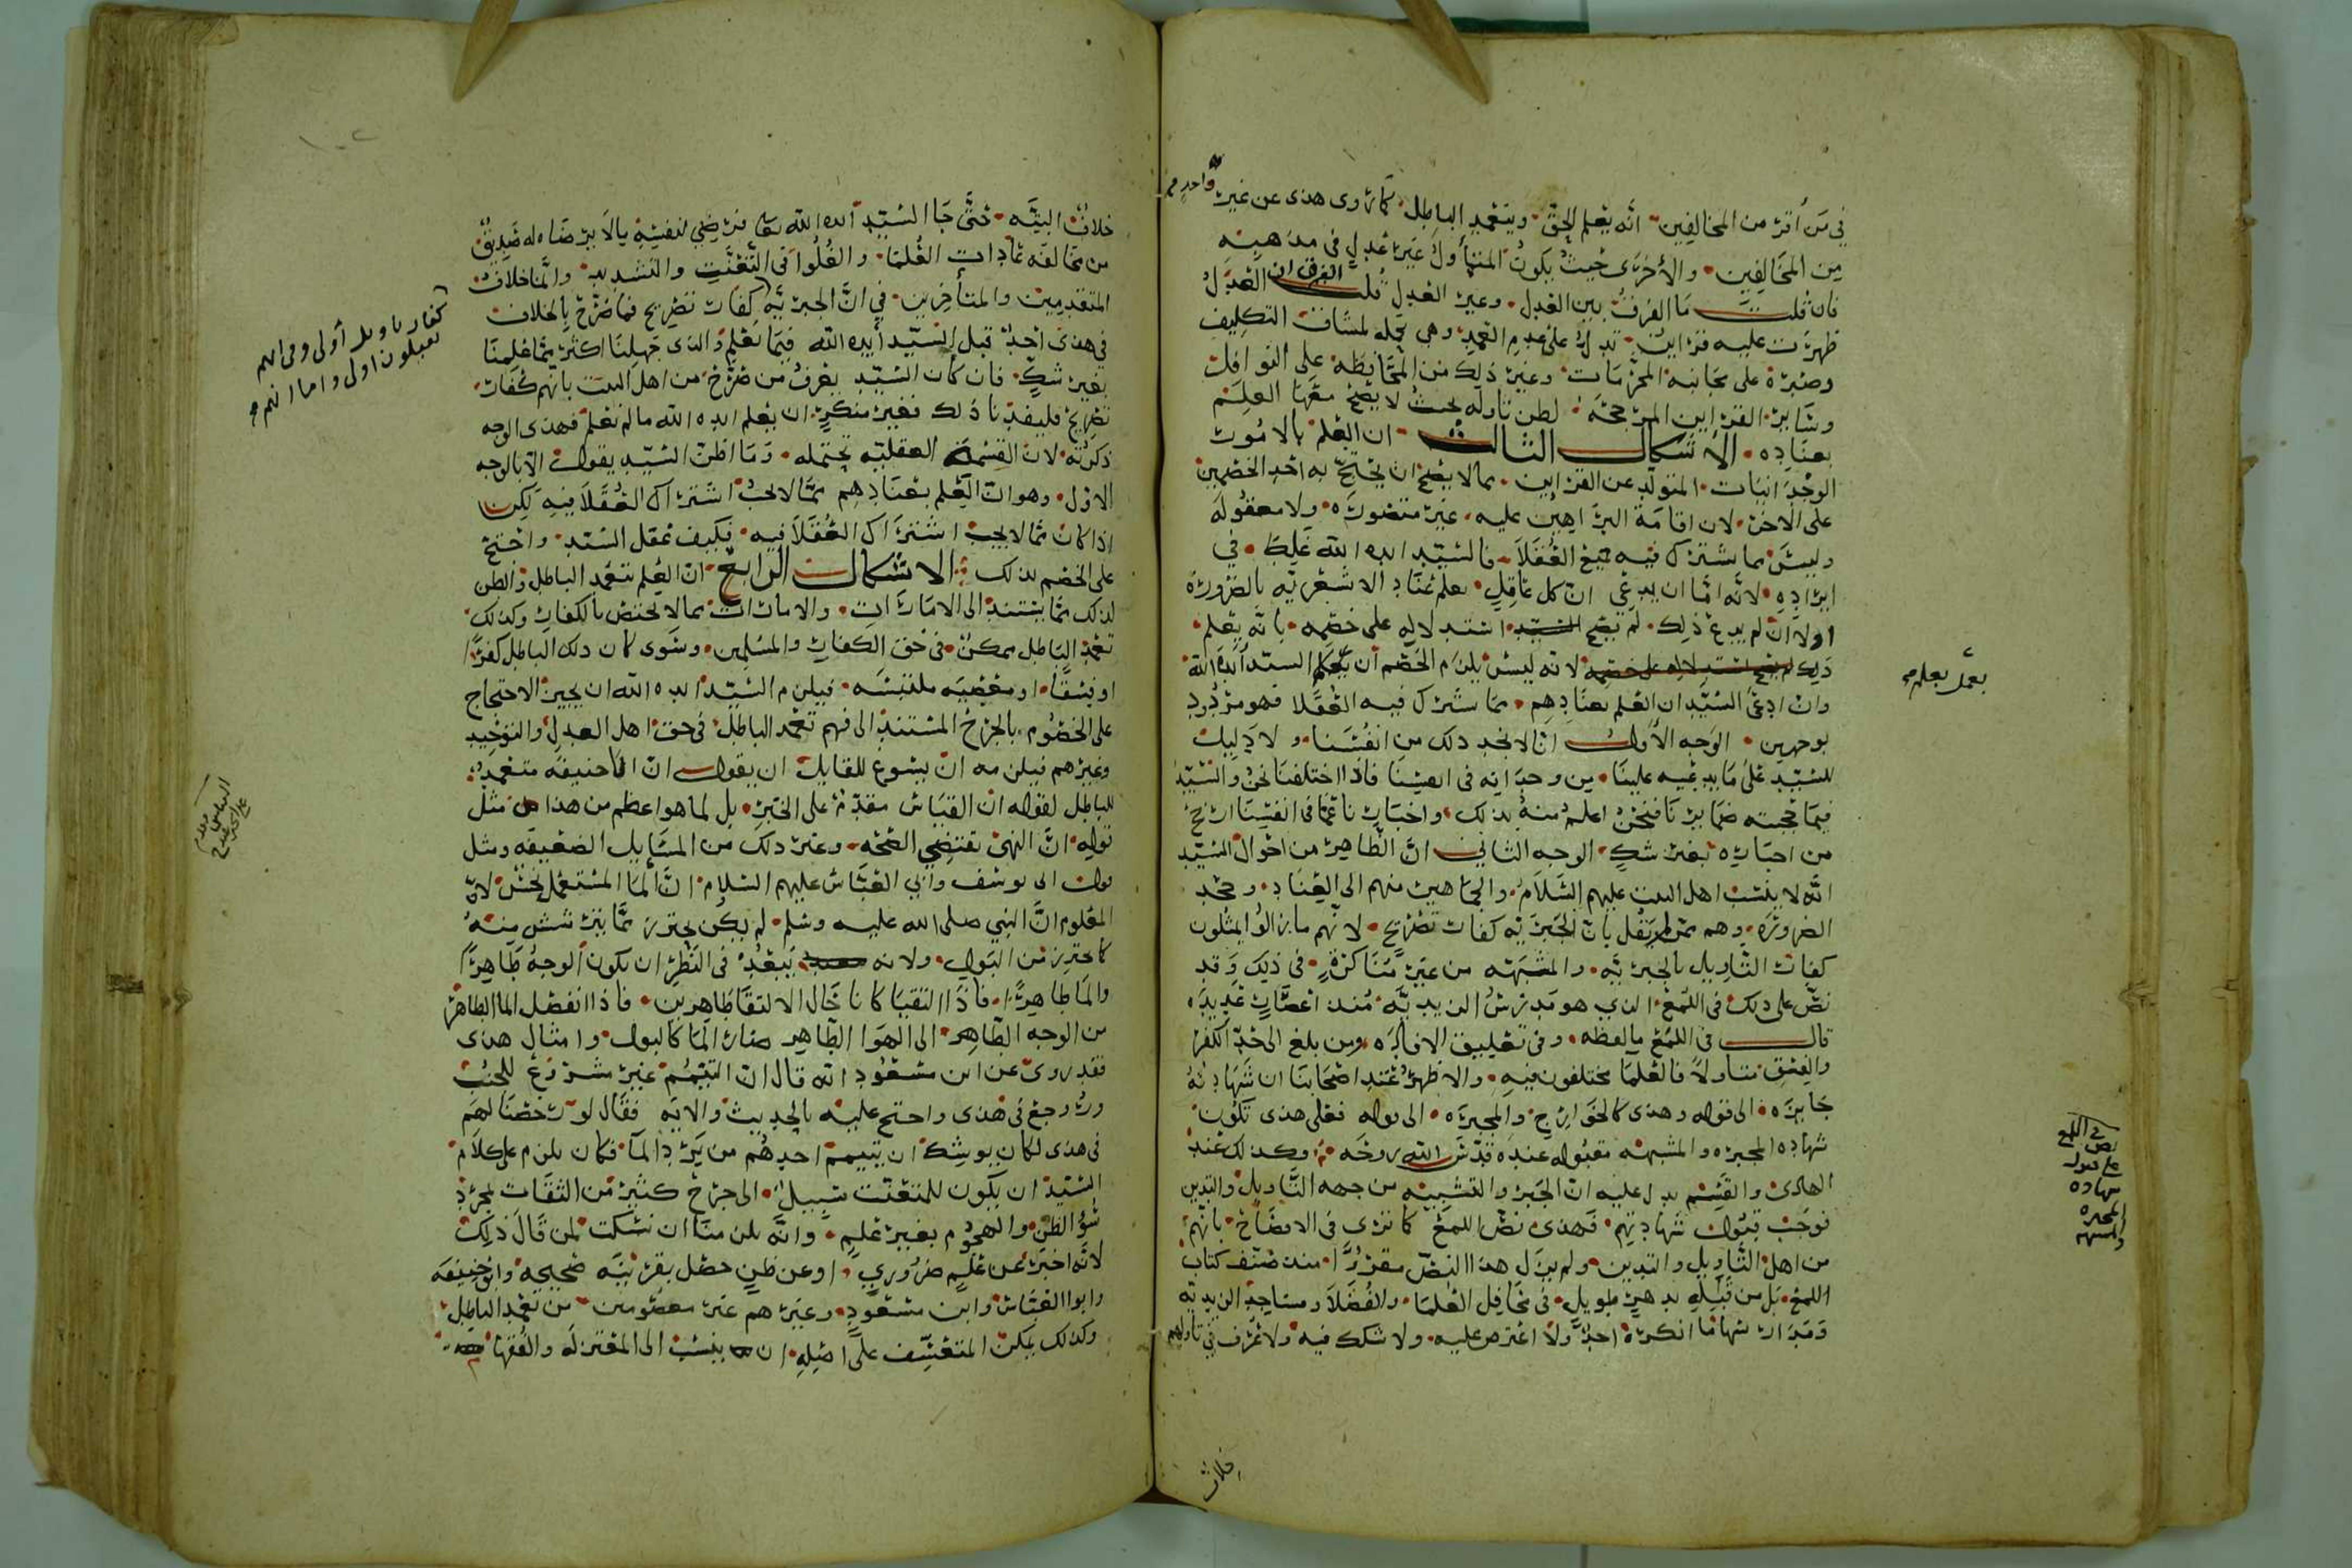 في من أقر من المخالفين انه يعلم الحق ويتعمد الباطل كما روى هذى عن غير واحد
من المخالفين والأخرى حيث يكون المتأول غير عدل في مذهبه
فان قلت ما الفرق بين العدل وغير العدل قلت الفرق ان العدل
ظهرت عليه قراين تدل على عدم التعمد وهي تحمله لمشاق التكليف
وصبره على مجانبه المحرمات وغير ذلك من المحافظه على النوافل
وساير القراين المرجحه لظن تاوله بحيث لا يصح معها العلم
بعناده الاشكال الثالث ان العلم بالامور
الوجدانيات المتولد عن القراين مما لا يصح ان يحتج به احد الخصمين
على الاخر لان اقامة البراهين عليه غير متصوره ولا معقوله
وليس مما يشترك فيه جميع العقلا فالسيد ايده الله غلط في
ايراده لانه اما ان يدعي ان كل عاقل يعلم عناد الاشعريه بالضرورة
اولا ان لم يدع ذلك لم يصح استدلاله على خصمه بانه يعلم
ذلك لانه ليس يلزم الخصم ان يعلم السيد ايده الله
وان ادعى السيد ان العلم بعنادهم مما يشترك فيه العقلا فهو مردود
بوجهين الوجه الأول انا لا نجد ذلك من انفسنا ولا دليل
للسيد على ما يدعيه علينا من وجدانه في انفسنا فاذا اختلفنا نحن والسيد
فيما تجنه ضمايرنا فنحن اعلم منه بذلك واخبارنا عما في انفسنا ارجح
من اخباره بغير شك الوجه الثاني ان الظاهر من احوال السيد
انه لا ينسب اهل البيت عليهم السلام والجماهير منهم الى العناد وجحد
الضروره وهم ممن لم يقل بان الجبريه كفار تصريح لانهم ما زالوا يمثلون
كفار التاويل بالجبريه والمشبهه من غير مناكرة في ذلك وقد
نص على ذلك في اللمع الذي هو مدرس الزيديه منذ اعصار عديده
قال في اللمع ما لفظه وفي تعليق الافاده ومن بلغ الى حد الكفر
والفسق متاولا فالعلما مختلفون فيه والاظهر عند اصحابنا ان شهادته
جايزه الى قوله وهذى كالخوارج والمجبره الى قوله فعلى هذى تكون
شهاده المجبره والمشبهه مقبوله عنده قدس الله روحه وكذلك عند
الهادى والقسم يدل عليه ان الجبر والتشبيه من جهه التاويل والتدين
فوجب قبول شهادتهم فهذى نص اللمع كما ترى في الافصاح بانهم
من اهل التاويل والتدين ولم يزل هذا النص مقررا منذ صنف كتاب
اللمع بل من قبله بدهر طويل في محافل العلما والفضلا ومساجد الزيديه
ومدارسها ما انكره احد ولا اعترض عليه ولا شكك فيه ولا نعرف في تاولهم
بعمل يعلم
في اللمع
نص
على قبول
شهاده
المجبره
والمشبهه
خلاف
١٠٢
خلاف البته حتى جا السيد ايده الله تعالى فرضي لنفسه ما لا يرضاه له صديق
من مخالفه عادات العلما والغلوا في التعنت والتشديد وانما خلاف
المتقدمين والمتأخرين في ان الجبريه كفار تصريح فما صرح بالخلاف
في هذى احد قبل السيد أيده الله فيما نعلم والذى جهلنا اكثر مما علمنا
بغير شك فان كان السيد يعرف من صرح من اهل البيت بانهم كفار
تصريح فليفدنا ذلك فغير منكر ان يعلم ايده الله ما لم نعلم فهذى الوجه
ذكرته لان القسمة العقليه تحتمله وما اظن السيد يقول الا بالوجه
الاول وهو ان العلم بعنادهم مما لا يجب اشتراك العقلا فيه لكن
اذا كان مما لا يجب اشتراك العقلا فيه فكيف غفل السيد واحتج
على الخصم بذلك الاشكال الرابع ان العلم بتعمد الباطل والظن
لذلك مما يستند الى الامارات والامارات مما لا يختص بالكفار وكذلك
تعمد الباطل ممكن في حق الكفار والمسلمين وسوى كان ذلك الباطل كفرا
او فسقا او معصيه ملتبسه فيلزم السيد ايده الله ان يجيز الاحتجاج
على الخصوم بالجرح المستند الى فهم تعمد الباطل في حق اهل العدل والتوحيد
وغيرهم فيلزمه ان يسوغ للقايل ان يقول ان ابا حنيفه متعمد
للباطل لقوله ان القياس مقدم على الخبر بل لما هو اعظم من هذا مثل
قوله ان النهى يقتضي الصحه وغير ذلك من المسايل الضعيفه ومثل
قول ابى يوسف وأبي العباس عليهم السلام ان الما المستعمل نجس لان
المعلوم ان النبي صلى الله عليه وسلم لم يكن يحترز مما يترشش منه
كما يحترز من البول ولانه يبعد في النظر ان يكون الوجه طاهرا
والما طاهرا فاذا التقيا كانا حال الالتقا طاهرين فاذا انفصل الما الطاهر
من الوجه الطاهر الى الهوا الطاهر صار الما كالبول وامثال هذى
فقد روى عن ابن مسعود انه قال ان التيمم غير مشروع للجنب
وروجع في هذى واحتج عليه بالحديث والايه فقال لو رخصنا لهم
في هذى لكان يوشك ان يتيمم احدهم من برد الما فكان يلزم على كلام
السيد ان يكون للمتعنت سبيل الى جرح كثير من الثقات بمجرد
سؤ الظن والهجوم بغير علم وانه يلزمنا ان نسكت لمن قال ذلك
لانه اخبر عن علم ضروري او عن ظن حصل بقرينه صحيحه وابو حنيفه
وابوا العباس وابن مسعود وغيرهم غير معصومين من تعمد الباطل
وكذلك يمكن المتعسف على اصله ان ينسب الى المعتزله والفقها
كفار تاويل أولى وفى انهم
يقبلون اولى واما انهم